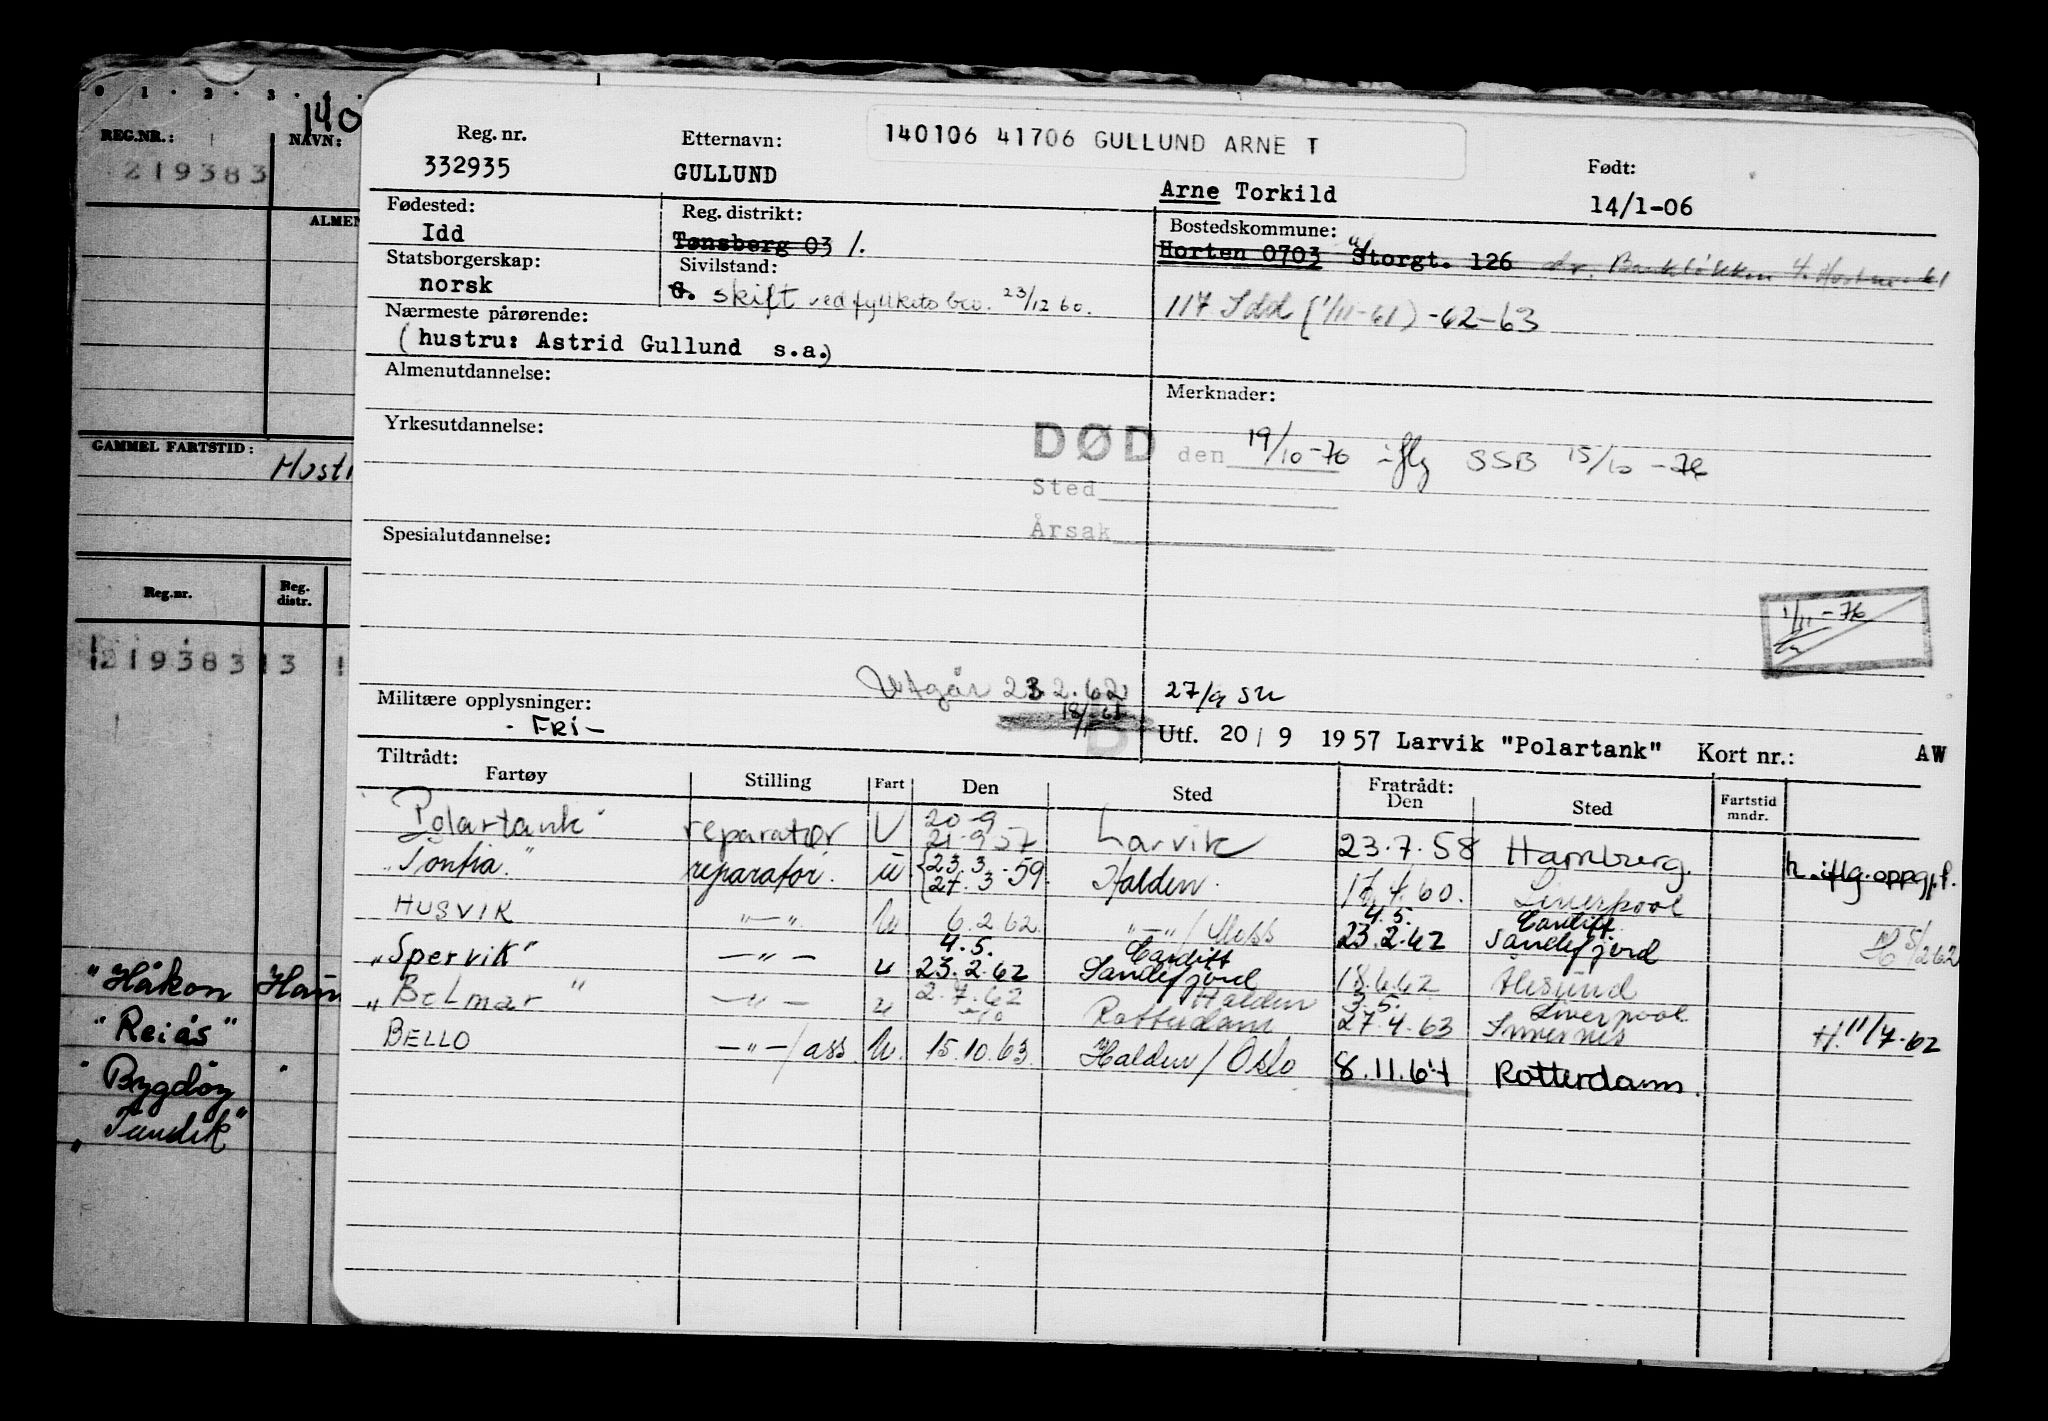 0 1 2 3
140
REG.NR.: NAVN:
219383
ALMEN
GAMMEL FARTSTID:
Reg.nr. Reg. distr.
219383 13
"Håkon
"Reiås"
"Bygdøy "
140106 41706 GULLUND ARNE T
Reg. nr. Etternavn: Født:
332935 GULLUND Arne Torkild 14/1-06
Fødested: Reg. distrikt: Bostedskommune:
Idd Tønsberg 03 /. Horten 0703 Storgt. 126
Statsborgerskap: Sivilstand:
norsk G. skift ved fylkets bev. 23/12 60. 117 Idd (1/11-61) -62-63
Nærmeste pårørende:
(hustru: Astrid Gullund s.a.)
Almenutdannelse: Merknader:
Yrkesutdannelse:
DØD den 19/10-76 iflg SSB 15/10-76
Sted
Årsak
Spesialutdannelse:
1/11-76
Utgår 23.2.62 27/9 
Militære opplysninger:
-FRI-
Utf. 20/9 1957 Larvik "Polartank" Kort nr.: AW
Tiltrådt: Fratrådt:
Fartøy Stilling Fart Den Sted Den Sted Fartstid mndr.
Polartank reparatør U 20-9 21-9 57 Larvik 23.7.58 Hamburg h.iflg.oppg.
reparatør. u {23.3. 27.3 -59. Halden. .60. Liverpool
HUSVIK -"- U 6.2.62. -"-/ 4.5. 23.2.62 Cardiff Sandefjord
"Spervik" -"- u 4.5. 23.2.62 Cardiff Sandefjord 18.6.62 Ålesund
"Belmar" -"- u 2.7.62 Halden Rotterdam 3.5. 27.4.63 Liverpool H.11/7-62
BELLO -"-/ass. U. 15.10.63. Halden/Oslo 8.11.64 Rotterdam.